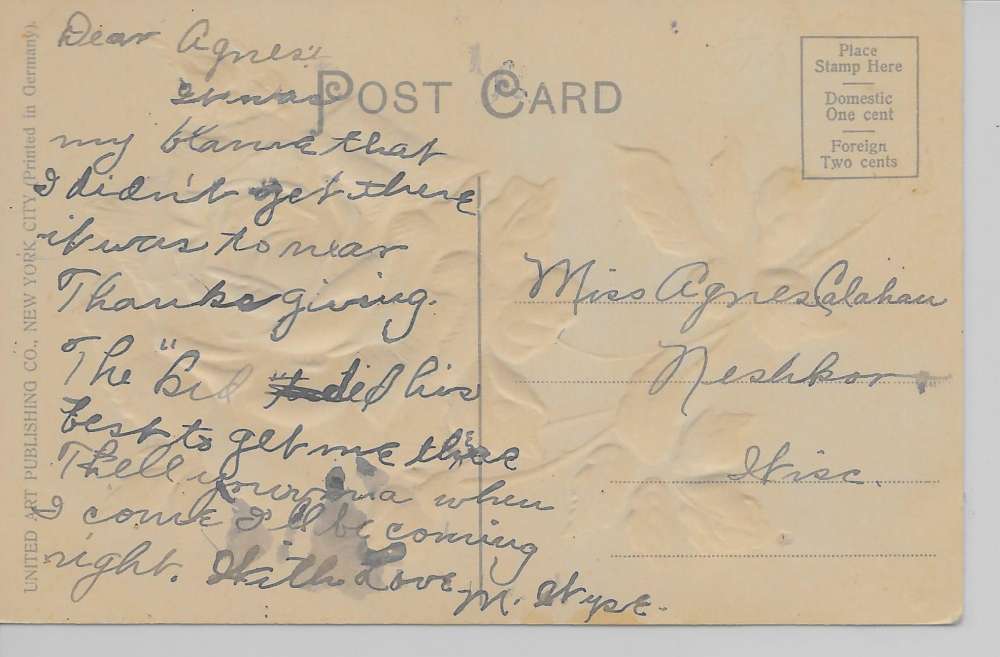 Dear Agnes:
It was
my blame that
I didn't get there
it was to near
Thanksgiving.
The "Bed did his
best to get me there
Thell your ma when
I come I'll be coming
right. With Love
M. Wyse.
POST CARD
Place
Stamp Here
Domestic
One cent
Foreign
Two cents
Miss Agnes Calahan
Neshkoro
Wisc.
UNITED ART PUBLISHING CO., NEW YORK CITY (Printed in Germany).